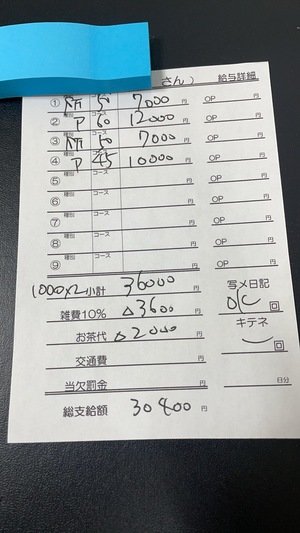 さん） 給与詳細
① 種別 所 コース 50 7000 円 OP 円
② 種別 P コース 60 12000 円 OP 円
③ 種別 所 コース 50 7000 円 OP 円
④ 種別 P コース 45 10000 円 OP 円
⑤ 種別 コース 円 OP 円
⑥ 種別 コース 円 OP 円
⑦ 種別 コース 円 OP 円
⑧ 種別 コース 円 OP 円
⑨ 種別 コース 円 OP 円
1000×2 小計 36000 円 写メ日記
雑費10% △3600 円 OK 回
お茶代 △2000 円 キテネ
交通費 円 回
当欠罰金 円 日分
総支給額 30400 円